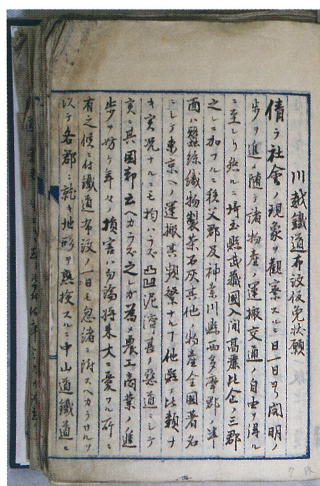 川越鐵道布設仮免状願
倩ラ社會ノ現象ヲ観察スルニ日一日ヨリ開明ノ
歩ヲ進メ随テ諸物産ノ運搬交通ノ自由ヲ得ル
ニ至レリ然ルニ埼玉縣武藏國入間高麗比企ノ三郡
之レニ加フルニ秩父郡及神奈川縣西多摩郡ノ半
面ハ蠶絲織物製茶石灰其他ノ物産全國著名
ニシテ東京ヘノ運搬其頻繁ナル他ニ比類ナ
キ実况ナルニモ拘ハラズ凸凹泥濘甚シキ悪道ニシテ
実ニ其困却云ヘカラズ之レカ為メ農工商業ノ進
歩ヲ妨ケ年々ノ損害ハ勿論将来大ニ憂フル所ニ
有之候ニ付鐵道布設ノ一日モ忽諸ニ附スヘカラサルヲ
以テ各郡ニ就キ地形ヲ點撿スルニ中山道鐵道ニ